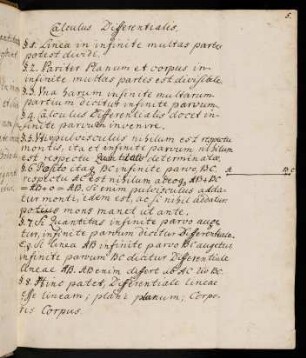 5.
Calculus Differentialis.
§ 1. Linea in infinite multas partes
potest dividi.
§ 2. Pariter Planum et corpus in
infinite multas partes est divisibile
§ 3. Una harum infinite multarum
partium dicitur infinite parvum.
§ 4. Calculus Differentialis docet in-
finite parvum invenire.
§ 5. Pulvisculus nihilum est respectu
montis, ita et infinite parvum nihilum
est respectu Quantitatis determinatæ.
§ 6. Posito itaq BC infinite parvo, BC
respectu AC est nihilum adeoq AB+BC
=AB+0=AB. Si enim pulvisculus adda-
tur monti, idem est, ac si nihil addatur
mons manet ut ante.
§ 7. Si Quantitas infinite parvo auge
tur, infinite parvum dicitur Differentiale.
E. g. Si linea AB infinite parvo BC augetur
infinite parvum BC dicitur Differentiale
lineae AB. AB enim differt ab AC BC.
§ 8. Hinc patet, Differentiale lineae
esse lineam; plani planum; Corpo-
ris Corpus.
A B C